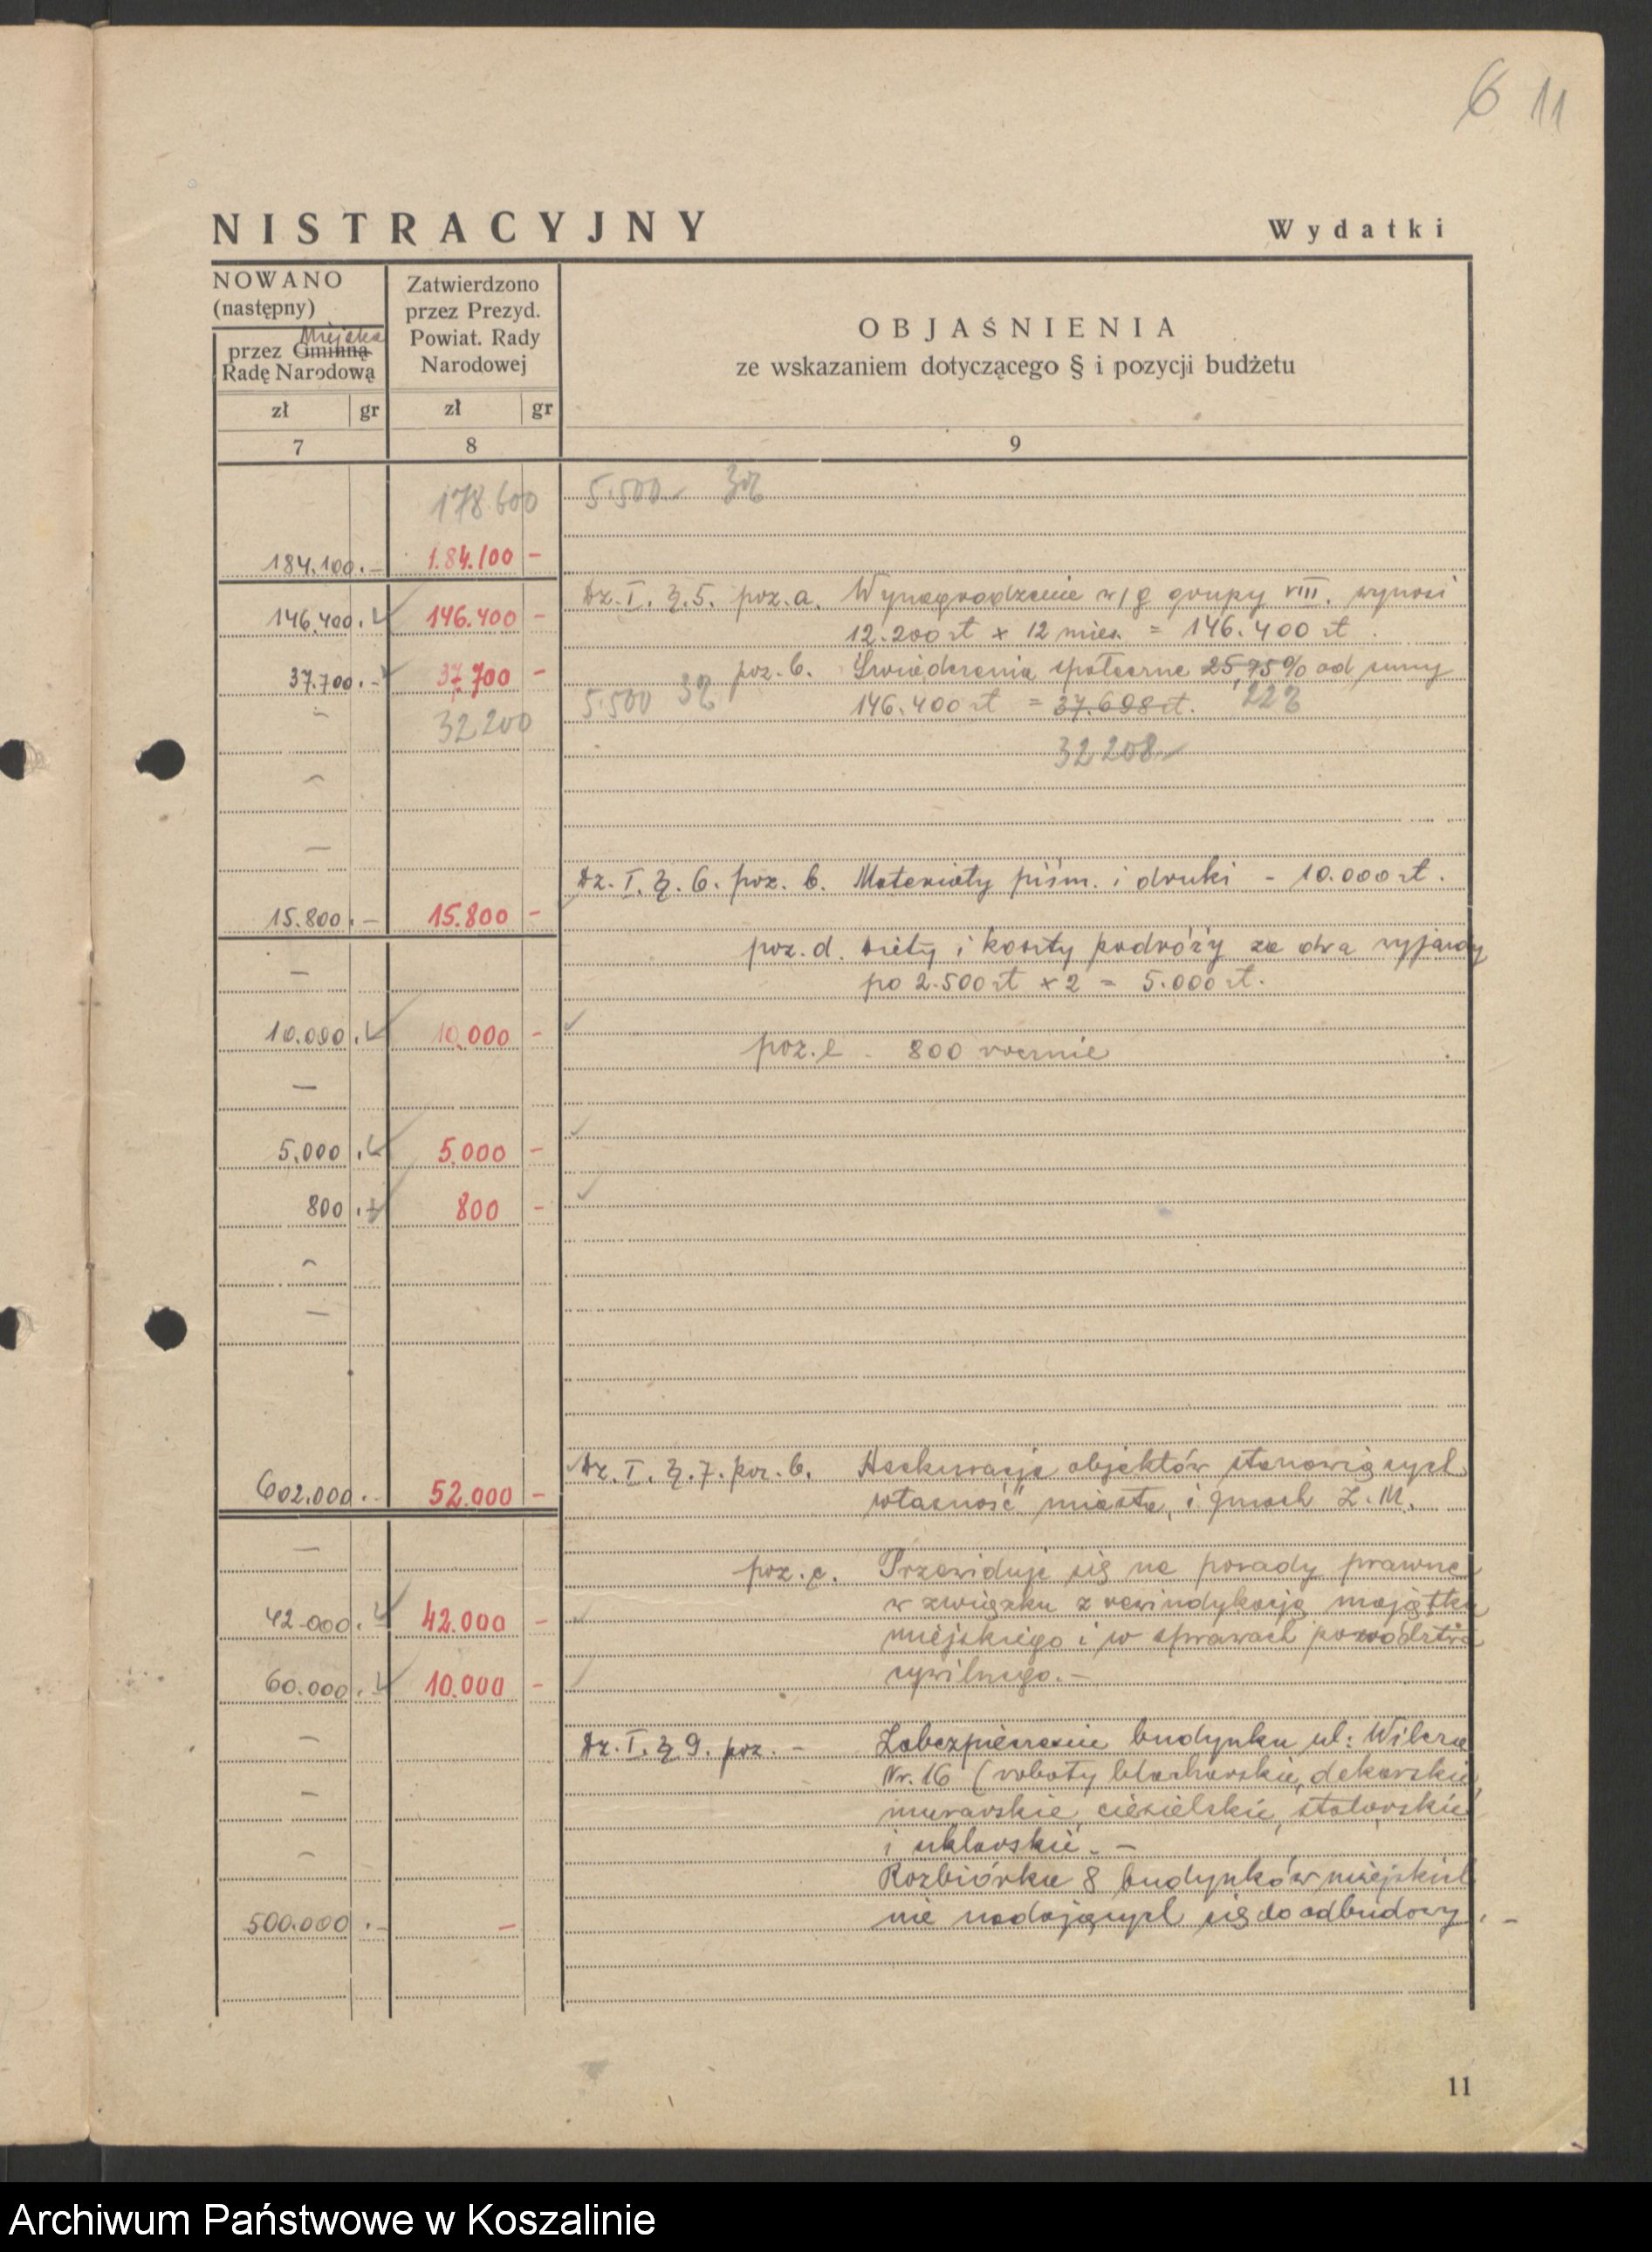 6 11
NISTRACYJNY
Wydatki
NOWANO
(następny)
Miejską
przez Gminną
Radę Narodową
Zatwierdzono
przez Prezyd.
Powiat. Rady
Narodowej
OBJAŚNIENIA
ze wskazaniem dotyczącego § i pozycji budżetu
zł gr zł gr
7 8 9
178.600 5.500
184.100.- 184.100 -
Dz. I. § 5. poz. a. Wynagrodzenie w/g grupy VIII. wynosi
146.400.- 146.400 -
12.200 zł x 12 mies. = 146.400 zł.
37.700.- 37.700 - poz. b. Świadczenia społeczne 25,75% od sumy
- 32200 5.500 146.400 zł = 37.698 zł. 22%
32208
-
-
Dz. I. § 6. poz. b. Materiały piśm. i druki - 10.000 zł.
15.800.- 15.800 -
poz. d. Diety i koszty podróży za dwa wyjazdy
-
po 2.500 zł x 2 = 5.000 zł.
10.000.- 10.000 -
poz. e - 800 rocznie
-
5.000.- 5.000 -
800.- 800 -
-
-
Dz. I. § 7. poz. b. Asekuracja objektów stanowiących
602.000.- 52.000 -
własność miasta, i gmach Z.M.
-
poz. c. Przewiduje się na porady prawne
w związku z rewindykacją majątku
42.000.- 42.000 -
miejskiego i w sprawach powództwa
60.000.- 10.000 - cywilnego.-
- Dz. I. § 9. poz. - Zabezpieczenie budynku ul: Wilcza
Nr. 16 (roboty blacharskie, dekarskie,
-
murarskie, ciesielskie, stolarskie
i szklarskie.-
-
Rozbiórka 8 budynków miejskich
500.000.- - nie nadających się do odbudowy.-
11
Archiwum Państwowe w Koszalinie